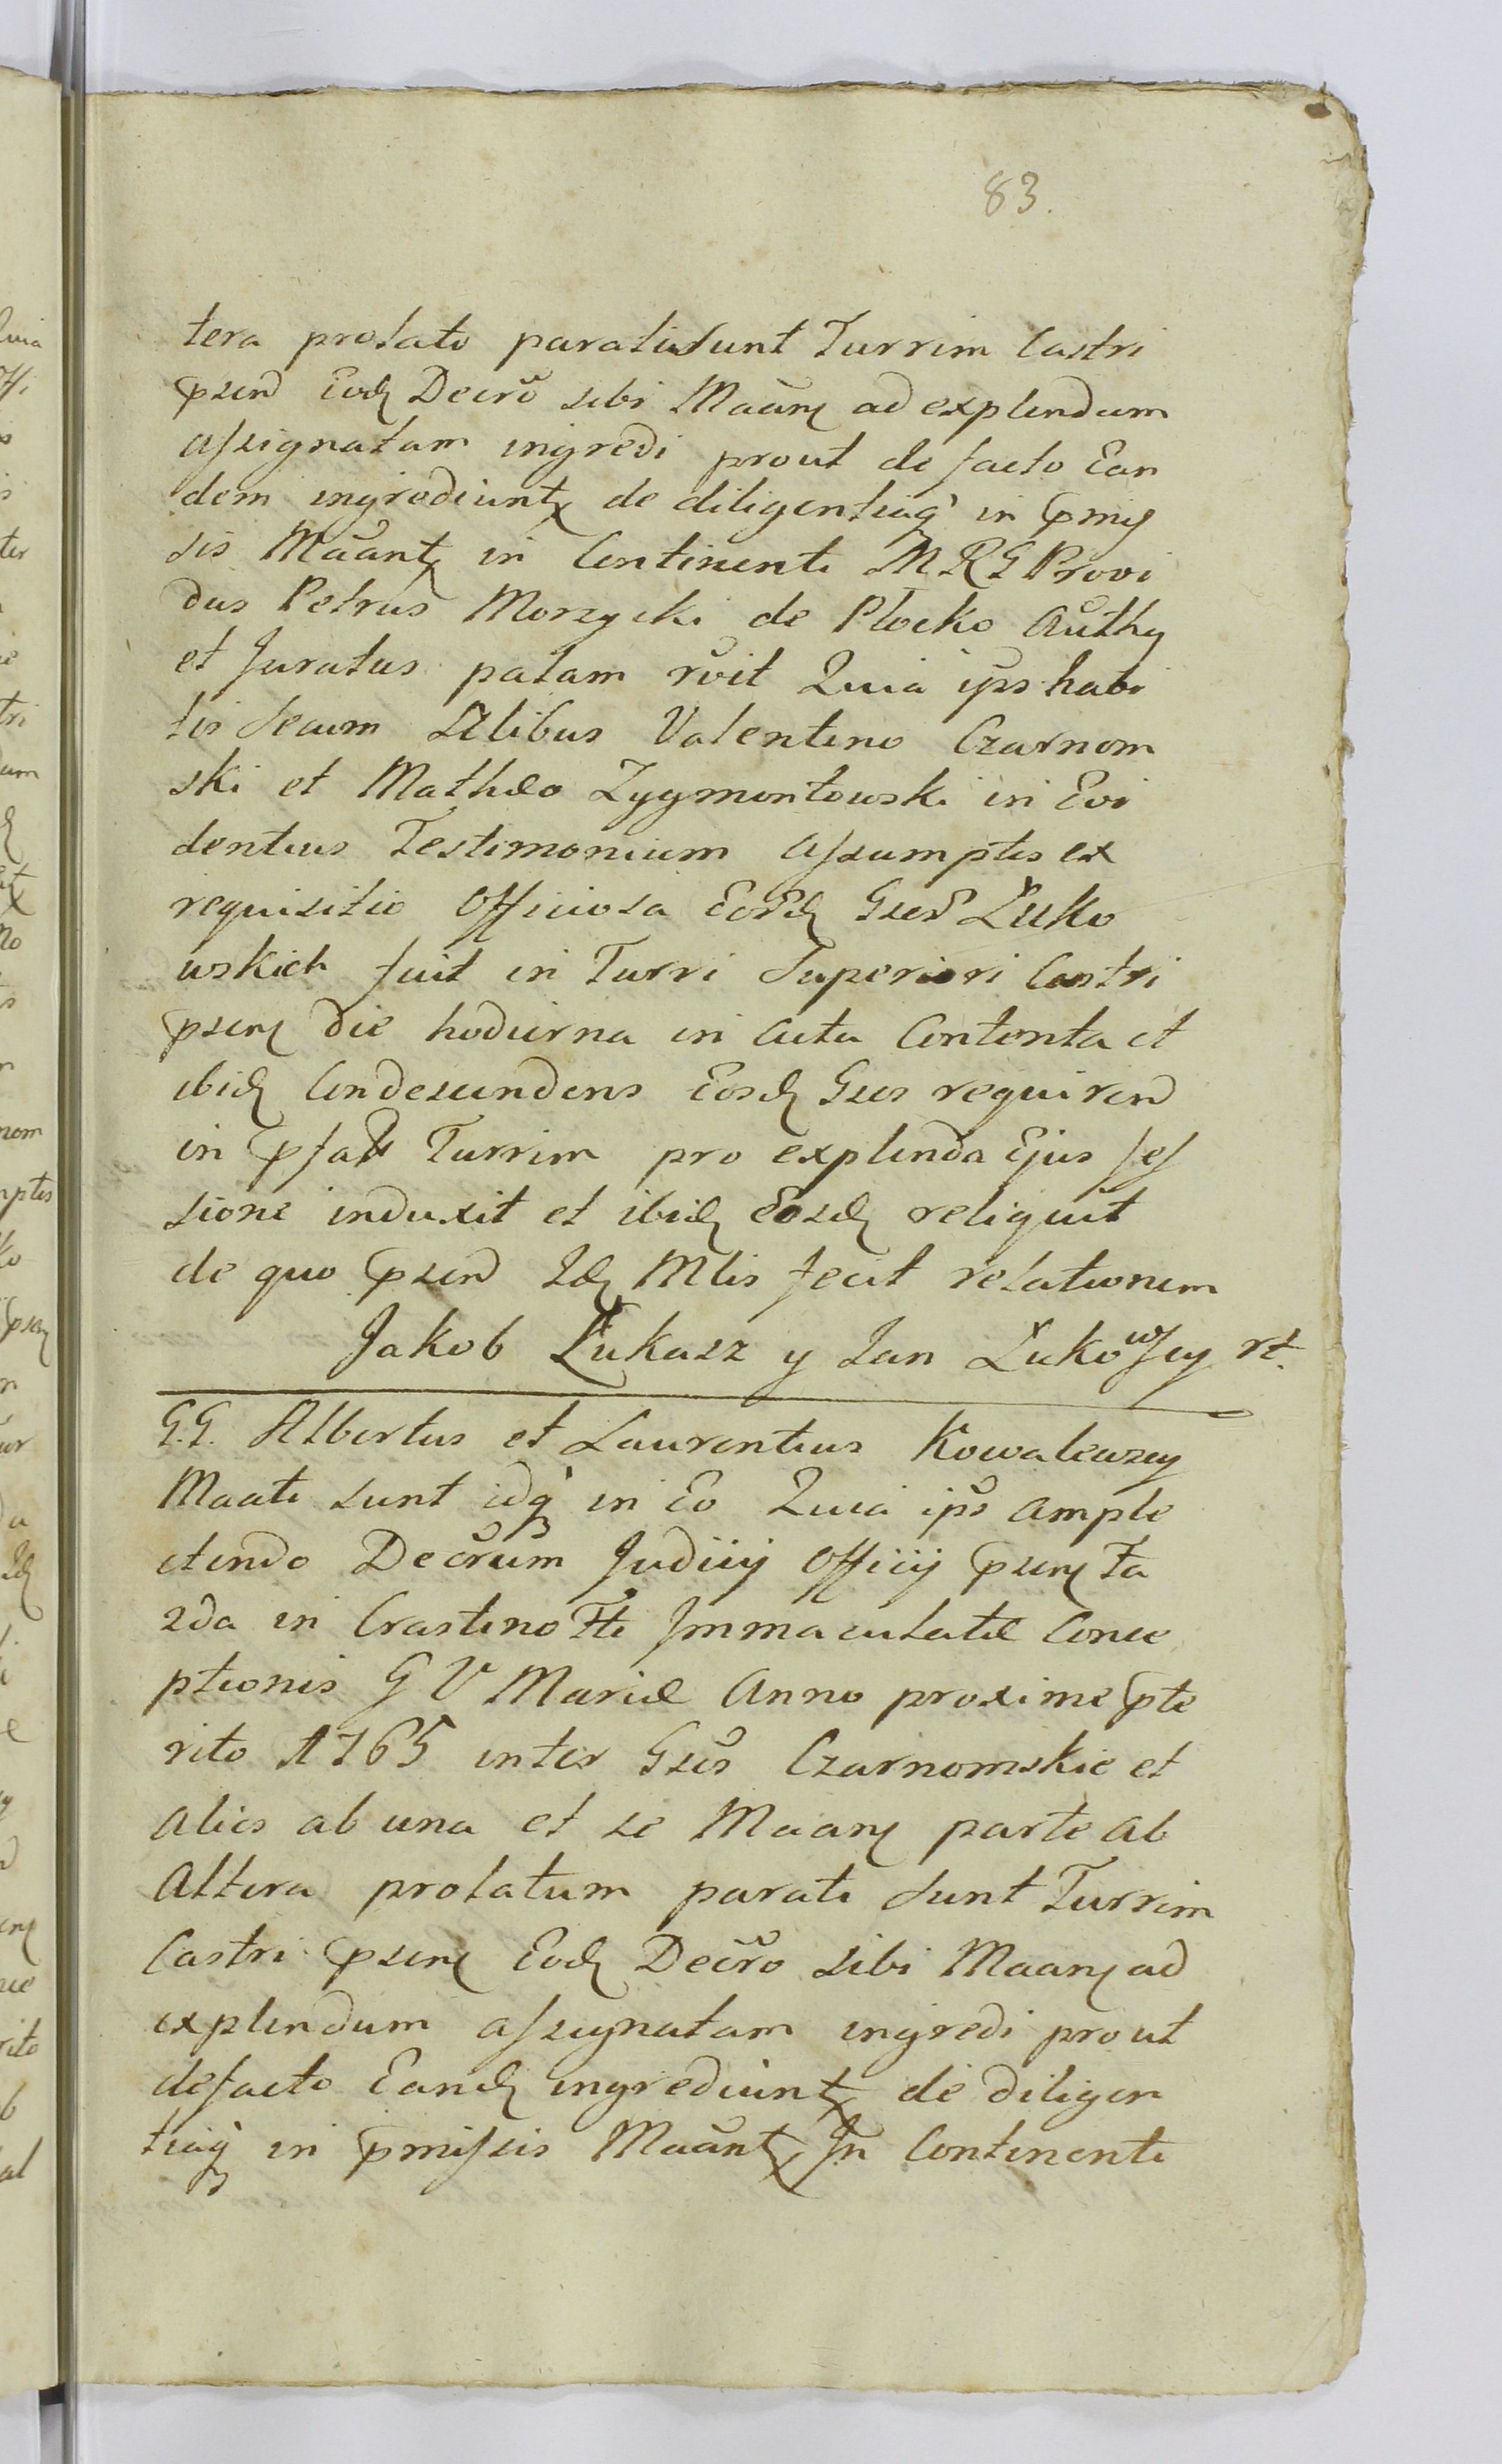 83.
tera prolato parati sunt Turrim Castri
pszend Eodz Decrō sibi Māānz ad explendum
assignatam ingredi prout de facto Ean
dem ingrediuntx de diligentiaq in pmis
sis Māāntx in Continenti M R G Provi
dus Petrus Morzycki de Plocko Authy
et Juratus palam rvit Quia ips habi
tis secum Nlibus Valentino Czarnom
ski et Mathæo Zygmontowski in Evi
dentius Testimonium assumptis ex
requisitio Officiosa Eord Gser Łuko
wskich fuit in Turri Superiori Castri
psenz die hodierna in Actu Contenta et
ibid Condescendens Eosd Gsos requirend
in pfat Turrim pro explenda Ejus ses
sione induxit et ibid Eosd reliquit
de quo psend Id Mlis fecit relationem
Jakob Łukasz y Jan Łukowscy rt.
G.G. Albertus et Laurentius Kowalewscy
Maati sunt idq in Eo Quia ipsample
ctendo Decrum Judicij Officij psenz Fa
zda in Crastino Fti Immaculatæ Conce
ptionis G V Mariæ Anno proxime pte
rito 1765 inter Gsos Czarnomskie et
alios ab una et se Maanz parte ab
Altera prolatum parati sunt Turrim
Castri psenz Eod Decro sibi Maanz ad
explendum assignatam ingredi prout
defacto Eand ingrediuntx de diligen
tiaq in pmissis Maantx In Continenti